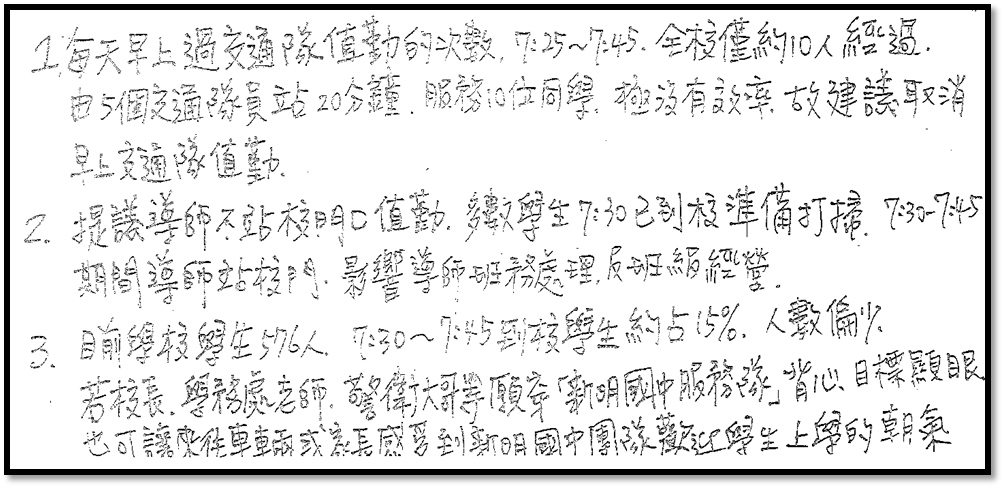 1. 每天早上過交通隊值勤的次數, 7:25~7:45. 全校僅約10人 經過.
由5個交通隊員站20分鐘. 服務10位同學. 極沒有效率. 故建議取消
早上交通隊值勤.
2. 提議導師不站校門口值勤. 多數學生7:30已到校準備打掃. 7:30-7:45
期間導師站校門. 影響導師班務處理, 及班級經營.
3. 目前學校學生576人. 7:30~7:45到校學生約占15%. 人數偏少.
若校長. 學務處老師. 警衛大哥等願穿「新明國中服務隊」背心 目標顯眼
也可讓來往車輛或家長感受到新明國中團隊歡迎學生上學的朝氣